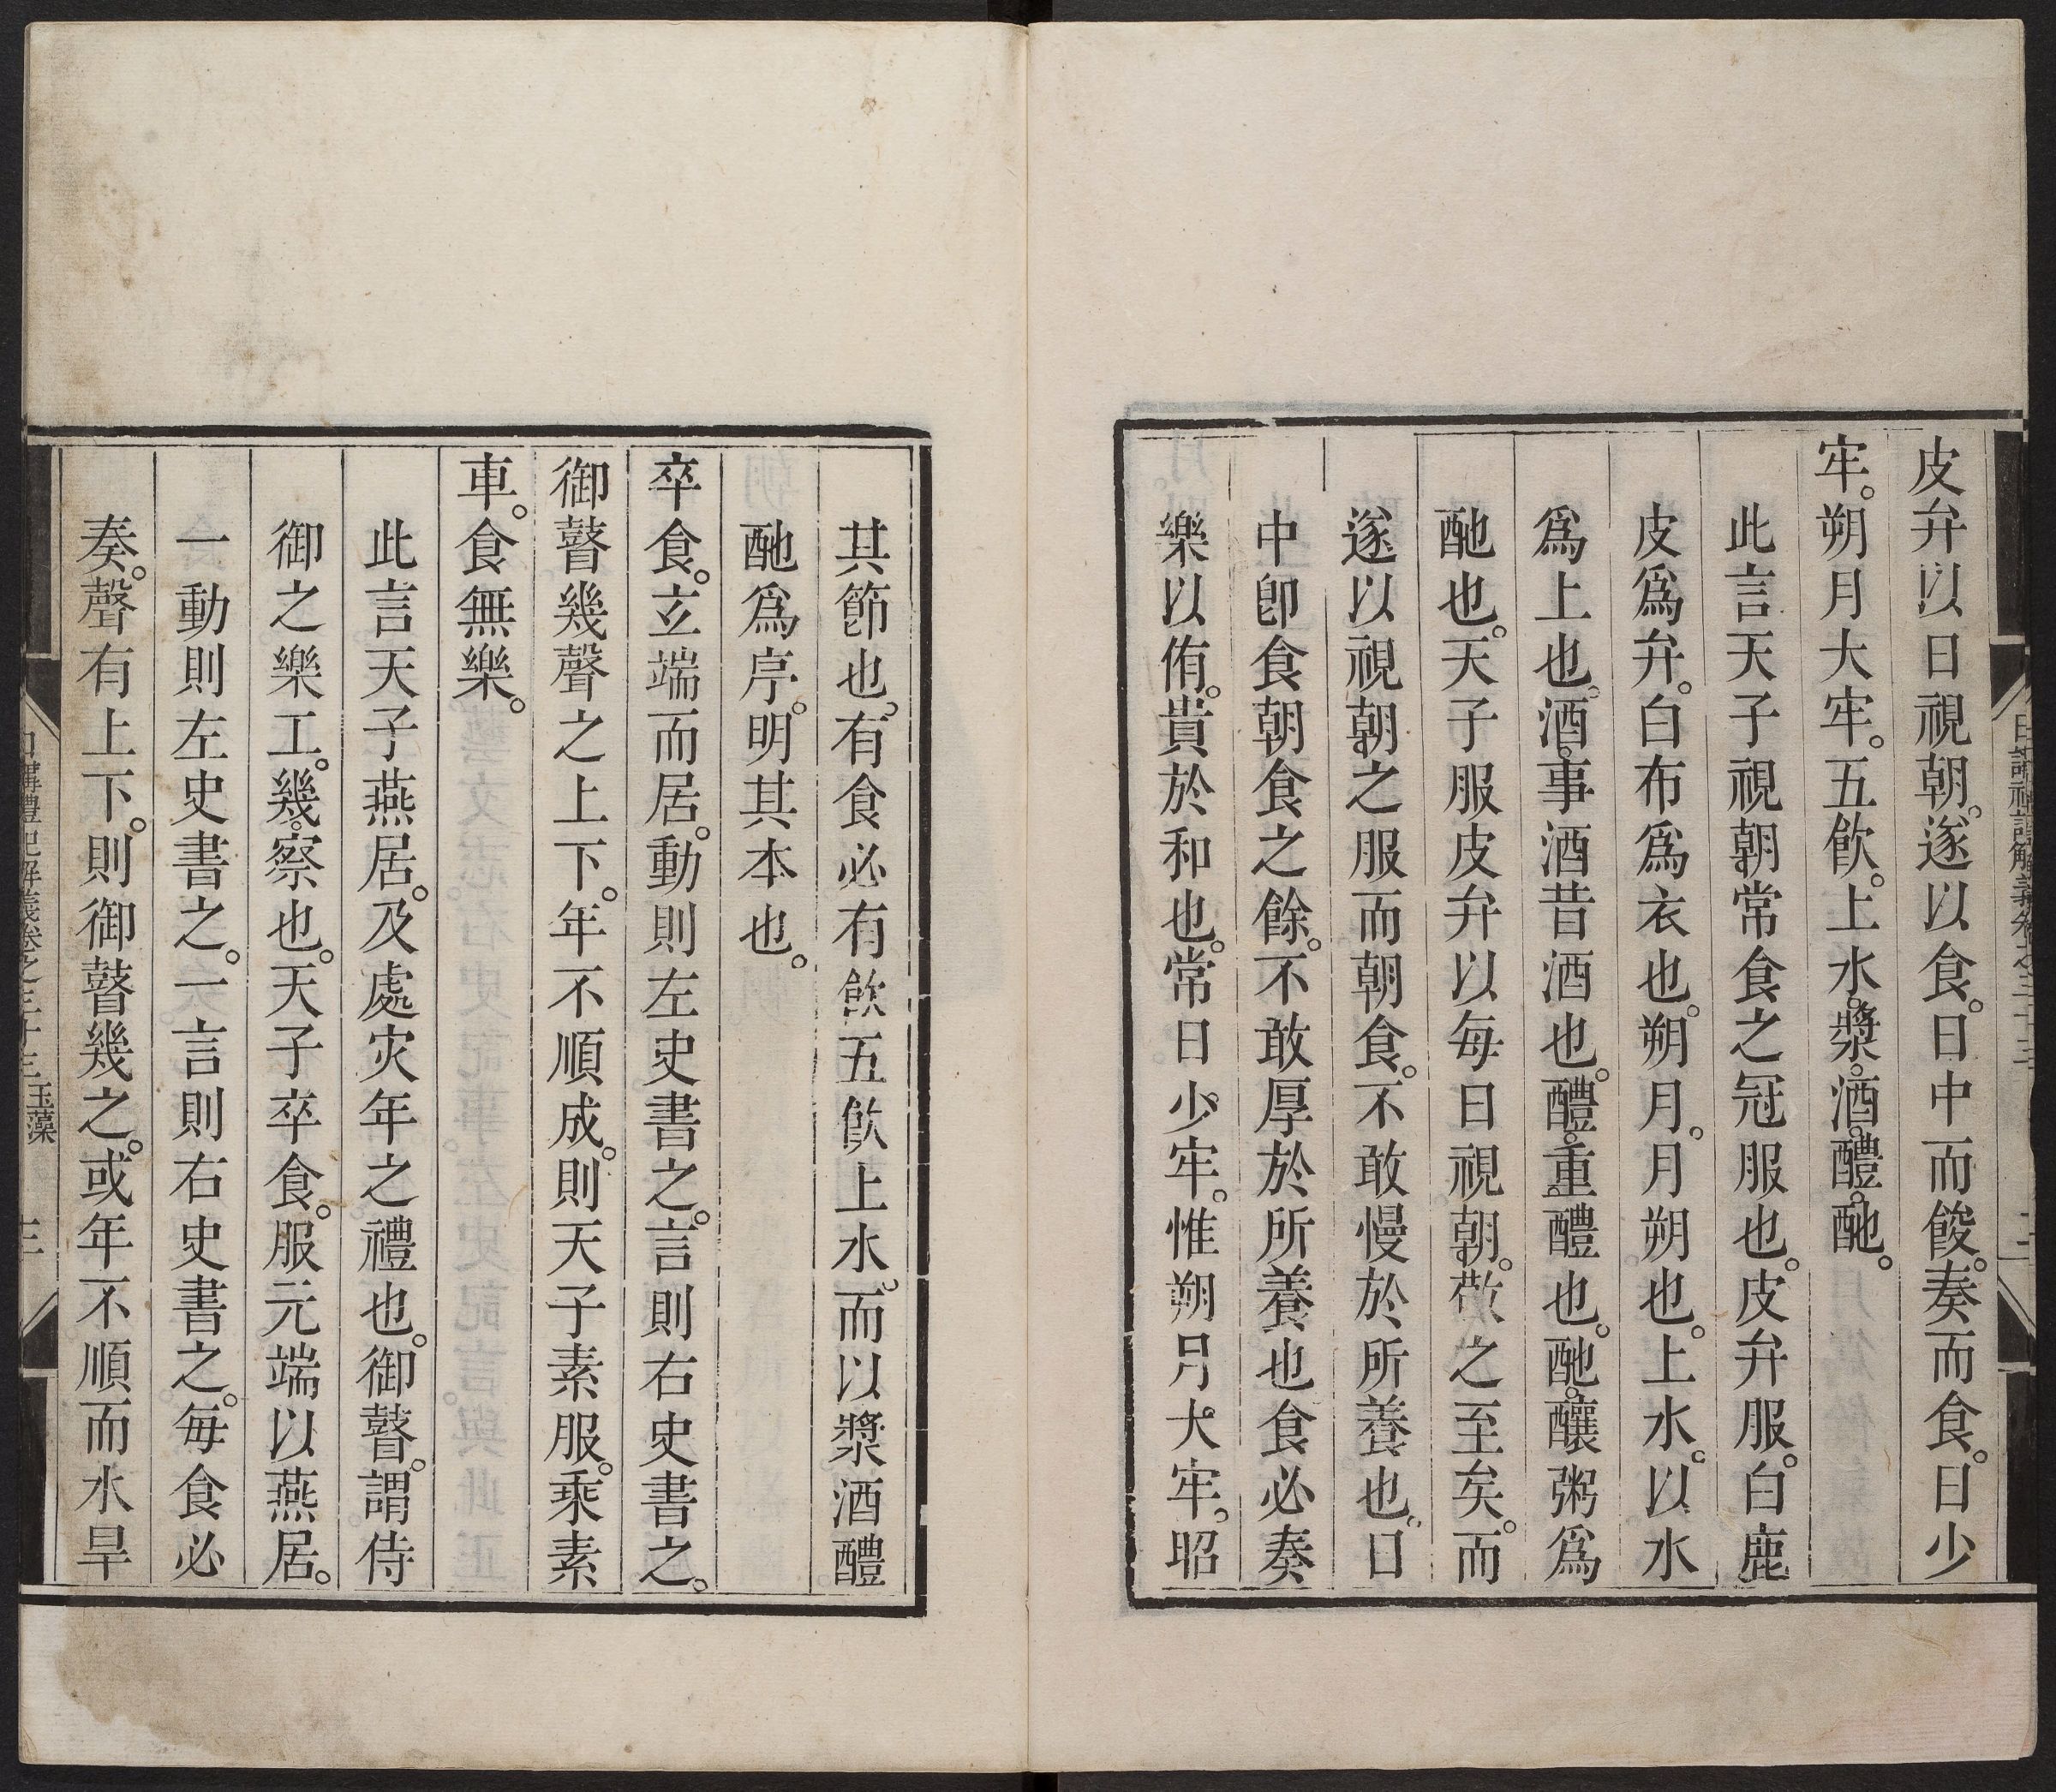 皮弁以日視朝。遂以食。日中而餕。奏而食。日少
牢。朔月大牢。五飲。上水。漿。酒。醴。酏。
此言天子視朝常食之冠服也。皮弁服。白鹿
皮爲弁。白布爲衣也。朔月。月朔也。上水。以水
爲上也。酒。事酒昔酒也。醴。重醴也。酏。釀粥爲
酏也。天子服皮弁以每日視朝。敬之至矣。而
遂以視朝之服而朝食。不敢慢於所養也。日
中卽食朝食之餘。不敢厚於所養也食必奏
樂以侑。貴於和也。常日少牢。惟朔月大牢。昭
其節也。有食必有飲五飲上水。而以漿酒醴
酏爲序。明其本也。
卒食。玄端而居。動則左史書之。言則右史書之。
御瞽幾聲之上下。年不順成。則天子素服。乘素
車。食無樂。
此言天子燕居。及處灾年之禮也。御瞽。謂侍
御之樂工。幾。察也。天子卒食。服元端以燕居。
一動則左史書之。一言則右史書之。每食必
奏。聲有上下。則御瞽幾之。或年不順而水旱
日講禮記解義卷之三十三 玉藻 三